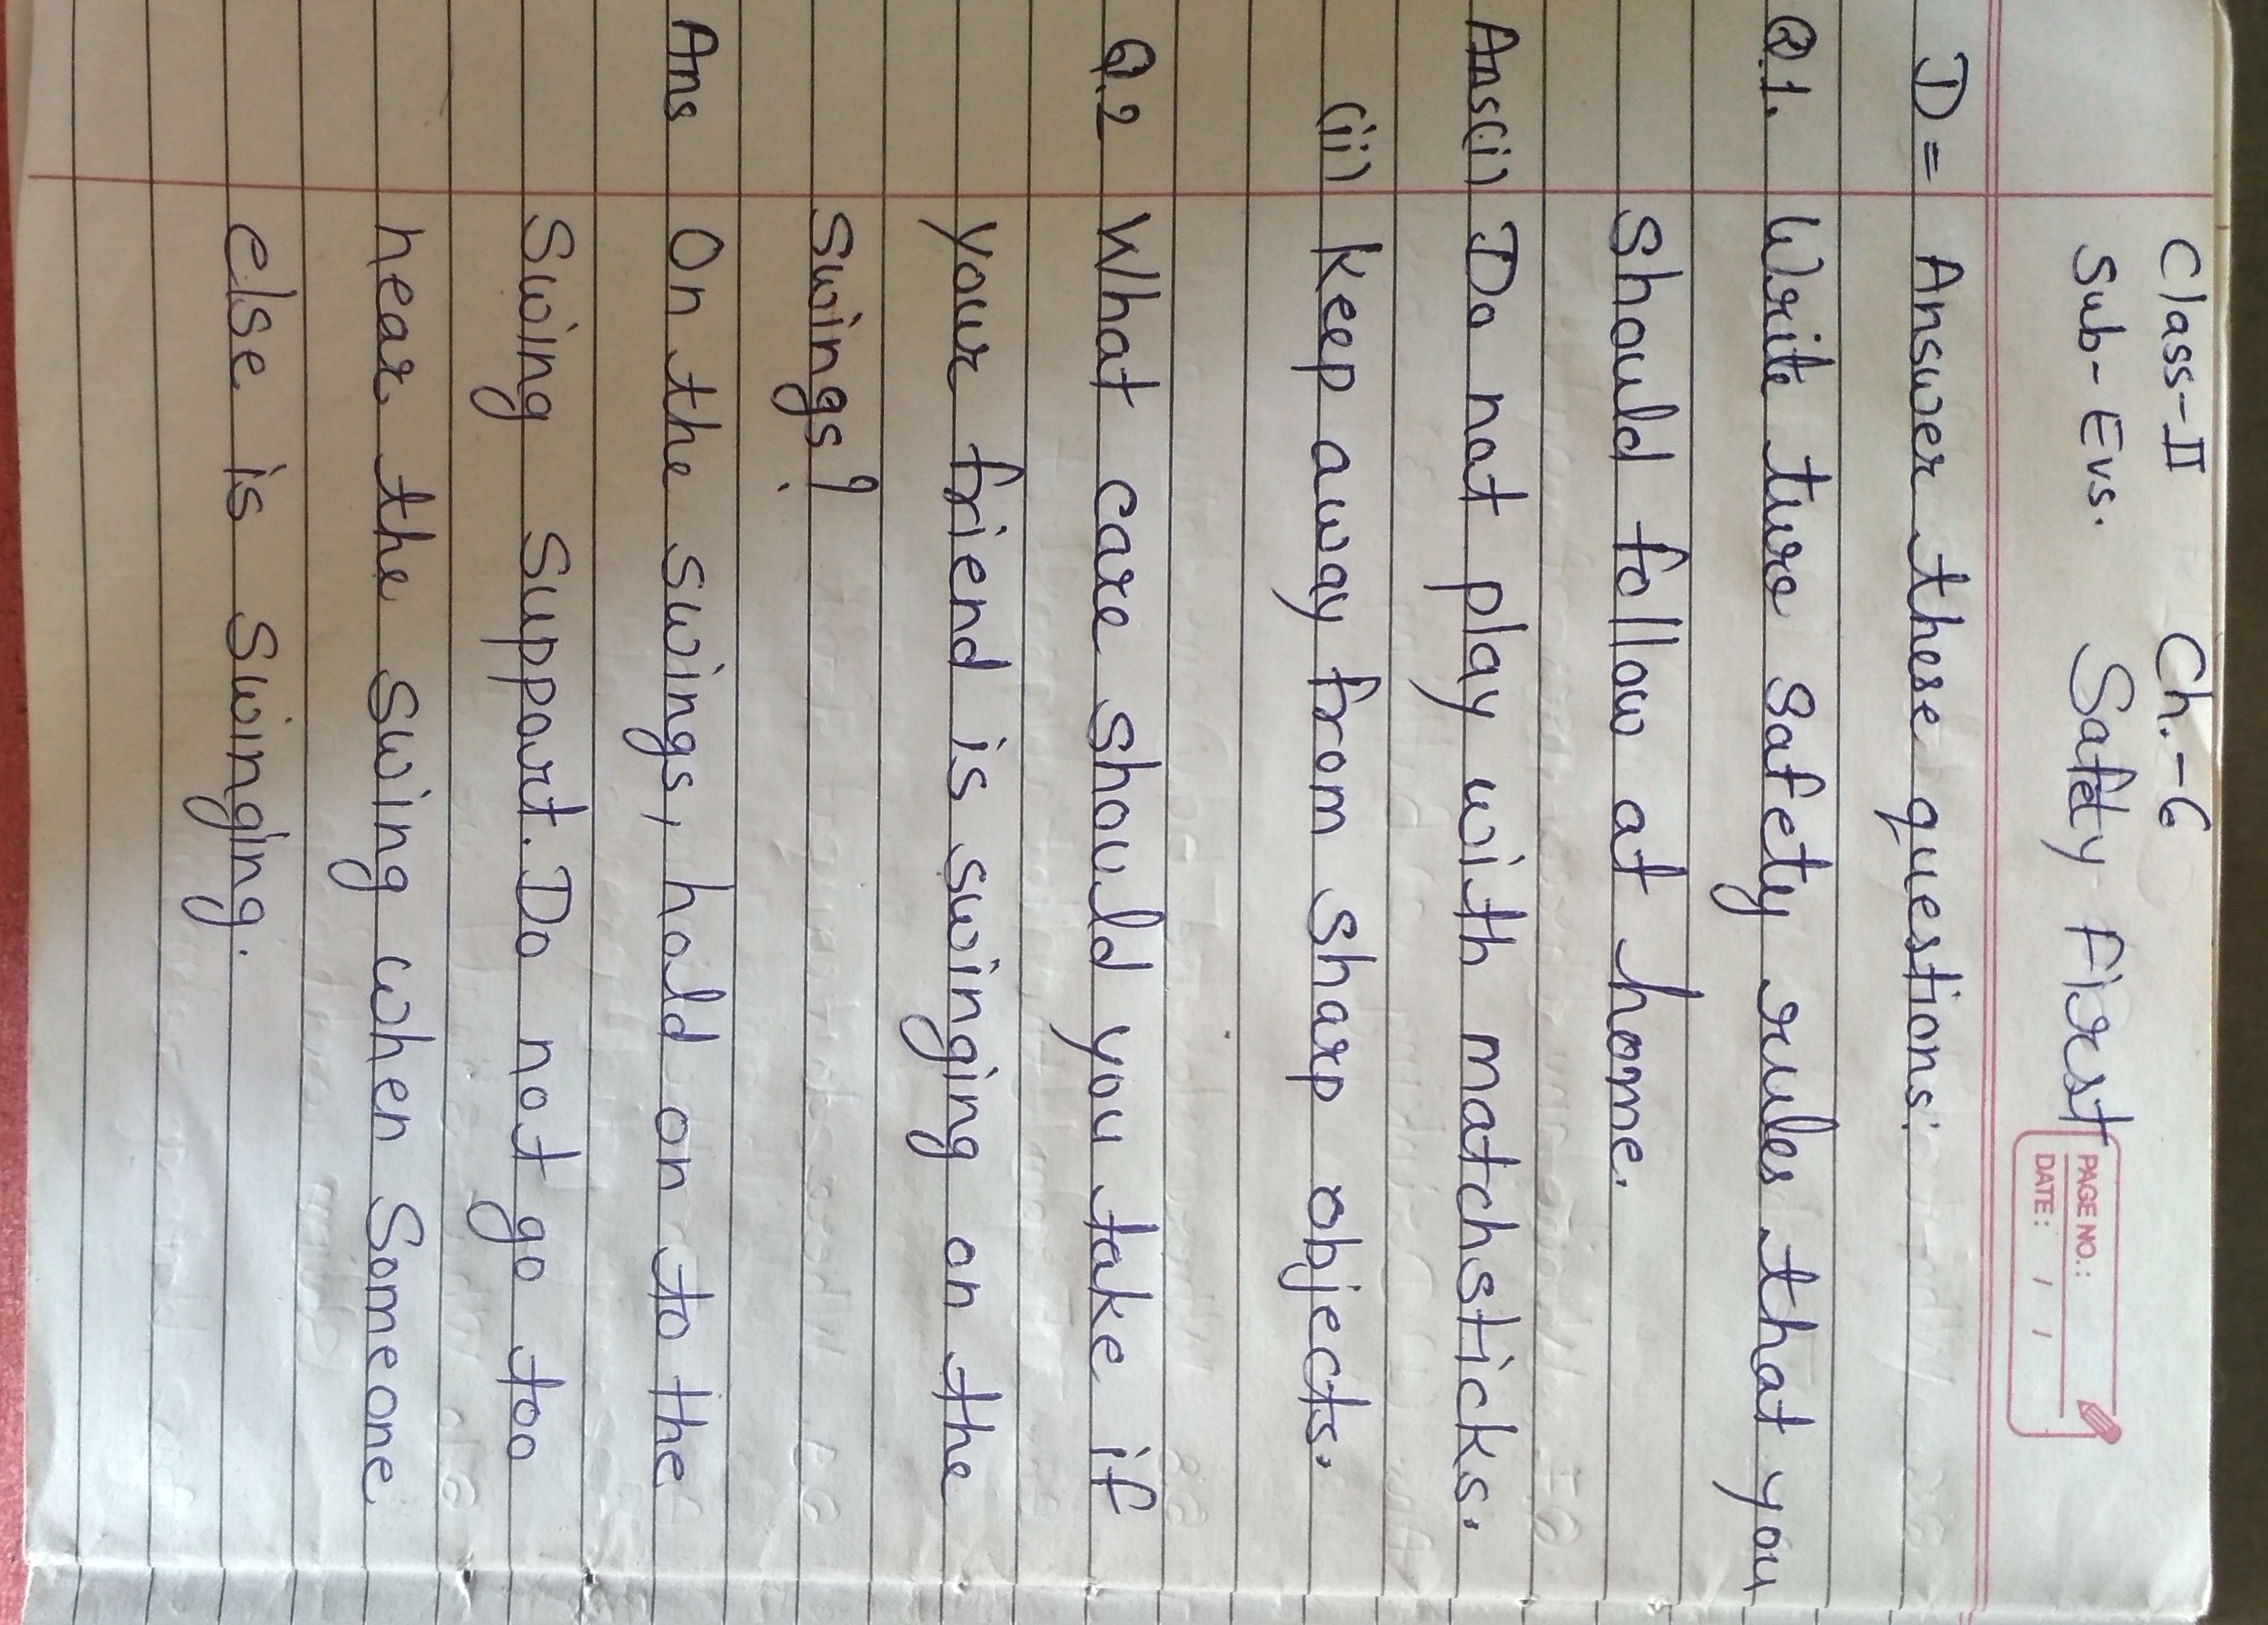 Class-II Ch.-6
Sub-Evs. Safety First
PAGE NO.:
DATE: / /
D= Answer these questions:
Q.1. Write two safety rules that you
should follow at home.
Ans(i) Do not play with matchsticks.
(ii) Keep away from sharp objects.
Q.2 What care should you take if
your friend is swinging on the
swings?
Ans On the swings, hold on to the
swing support. Do not go too
near the swing when someone
else is swinging.